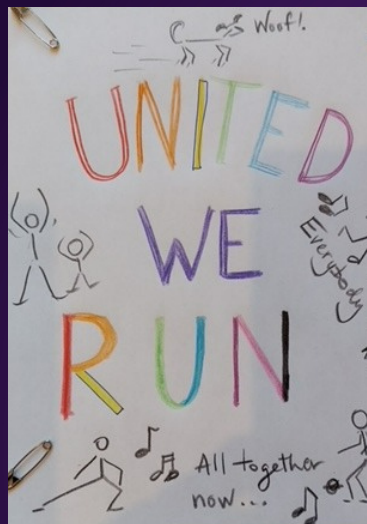 Woof!
UNITED
WE
Everybody
RUN
All together
now...